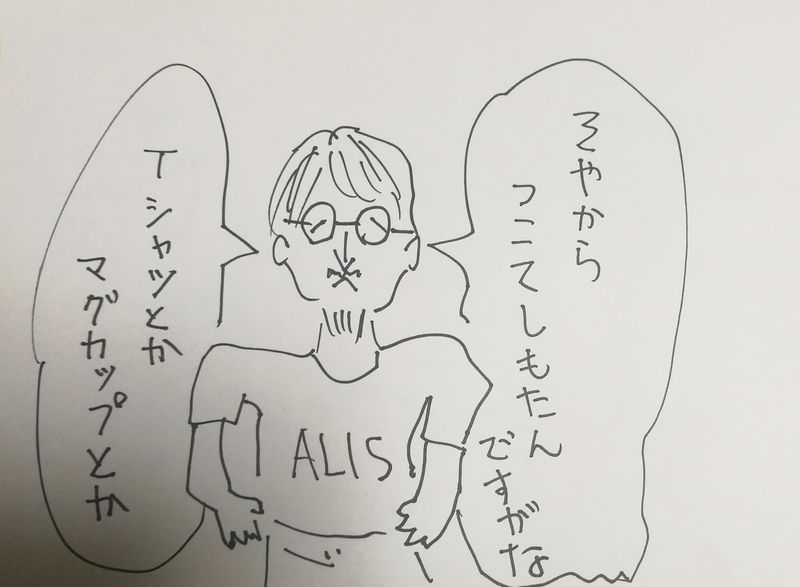 そやから
つこてしもたん
ですがな
Tシャツとか
マグカップとか
ALIS